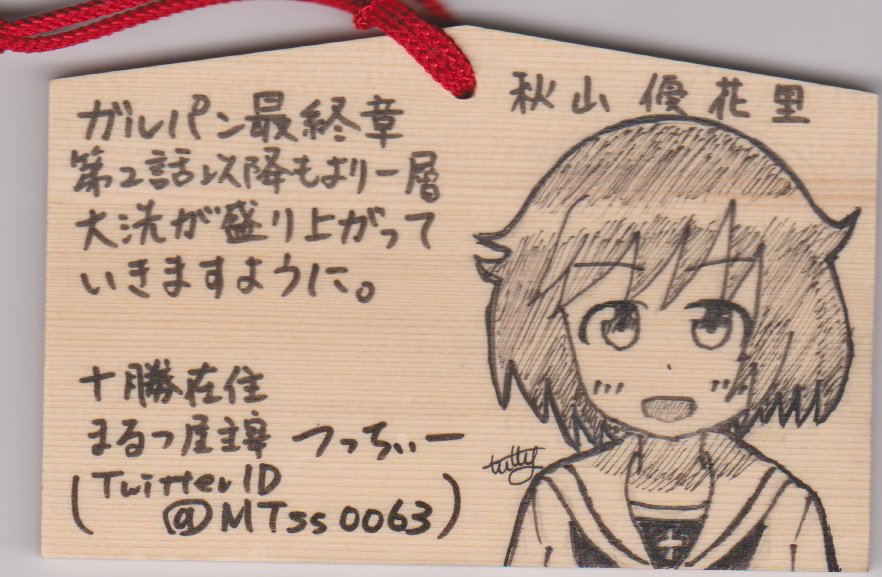 秋山優花里
ガルパン最終章
第2話以降もより一層
大洗が盛り上がって
いきますように。
十勝在住
まるつ屋主宰 つっちぃー
(TwitterID
@MTss0063)
tutty